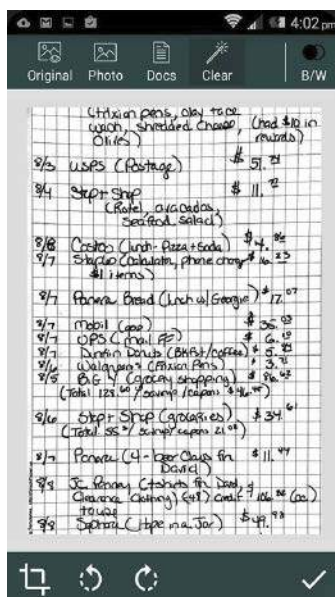 4:02 pm
Original Photo Docs Clear B/W
(Frixion pens, clay face
wash, shredded cheese, (had $10 in
Olives) rewards)
8/3 USPS (Postage) $51.
8/4 Stop + Shop $11.
(Rotel, avacados,
seafood salad)
8/8 Costco (lunch - Pizza + Soda) $4.
8/7 (Calculator, phone charg $16.23
$1 items)
8/7 Panera Bread (lunch w/ Georgie) $17.07
8/7 Mobil (gas) $35.03
8/7 UPS (mail FF) $6.19
8/7 Dunkin Donuts (BKfst/coffee) $5.
8/6 Walgreens (Frixion Pens) $3.
8/5 Big Y (grocery shopping) $86.62
(Total 128.60 / savings/coupons $
8/6 Stop + Shop (groceries) $34.61
(Total 55 / savings/coupons 21.
8/7 Panera (4 - bear claws for $11.
David)
8/8 JC Penney (tshirts for David, $
Clearance clothing) (48) credit 106. (cc)
8/8 Sephora (tape in a Jar) $49.98